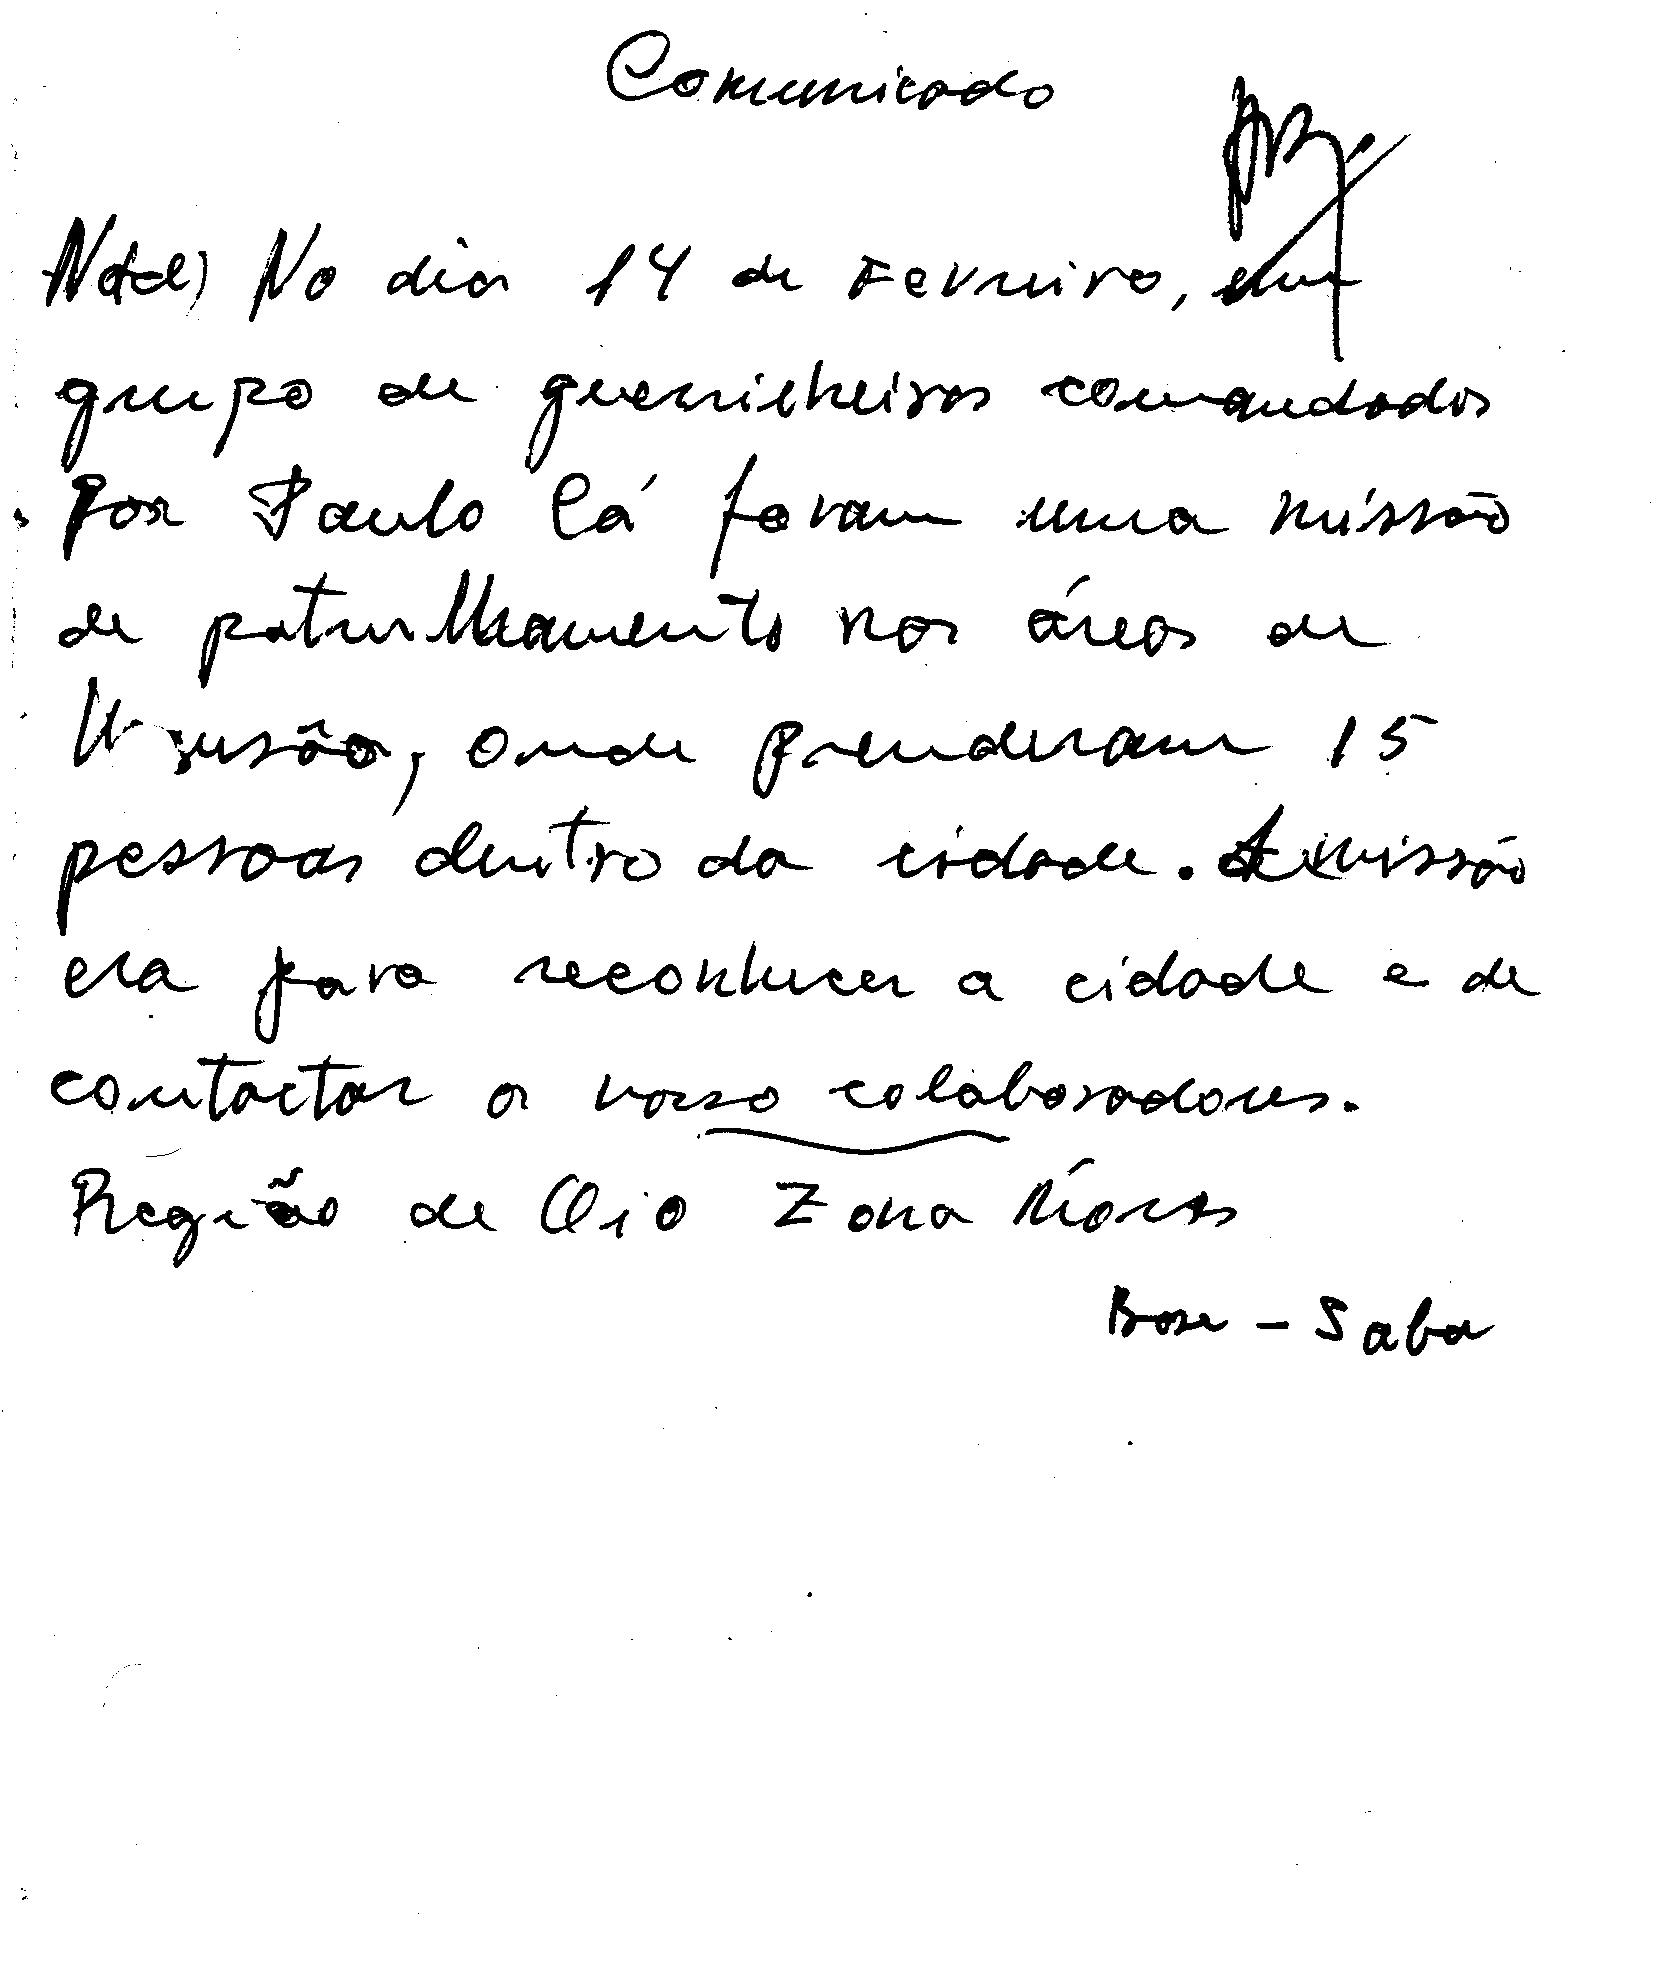 Comunicado
Nota) No dia 14 de Fevreiro, um
grupo de guerrilheiros comandados
por Paulo Cá foram uma missão
de patrulhamento nas áreas de
onde prenderam 15
pessoas dentro da cidade. A missão
era para reconhecer a cidade e de
contactar a nosso colaboradores.
Região de Oio Zona Norte
Base - Saba